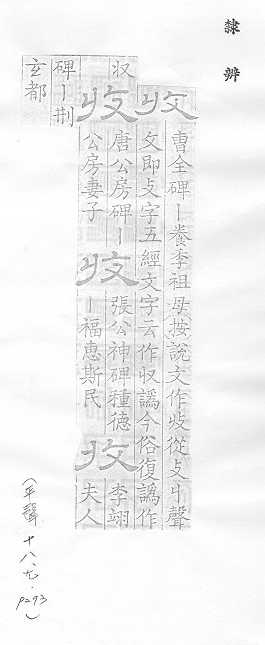 隸辨
收
曹全碑丨養季祖母按說文作收從攴丩聲
攵即攴字五經文字云作収譌今俗復譌作
収
收
唐公房碑丨
公房妻子
收
張公神碑種德
丨福惠斯民
收
李翊
夫人
碑丨荆
玄都
(平聲 十八、尤. P293)